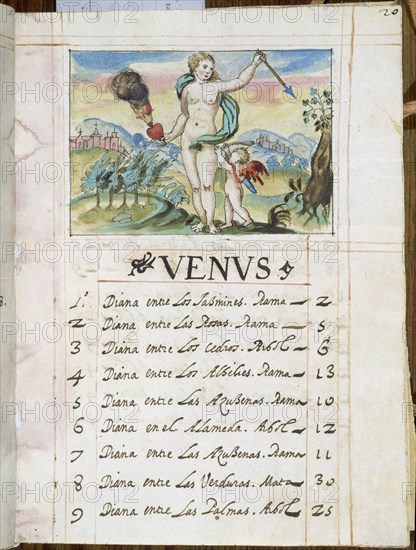 20
VENVS
1º Diana entre Los Jasmines. Rama — 2
2 Diana entre Las Rosas. Rama — 5
3 Diana entre Los Cedros. Arbol — 6
4 Diana entre Los Alhelies. Rama — 13
5 Diana entre Las Azuzenas. Rama 10
6 Diana en el Alameda. Arbol — 12
7 Diana entre Las Azuzenas. Rama 11
8 Diana entre Las Verduras. Mata — 30
9 Diana entre Las Palmas. Arbol 25